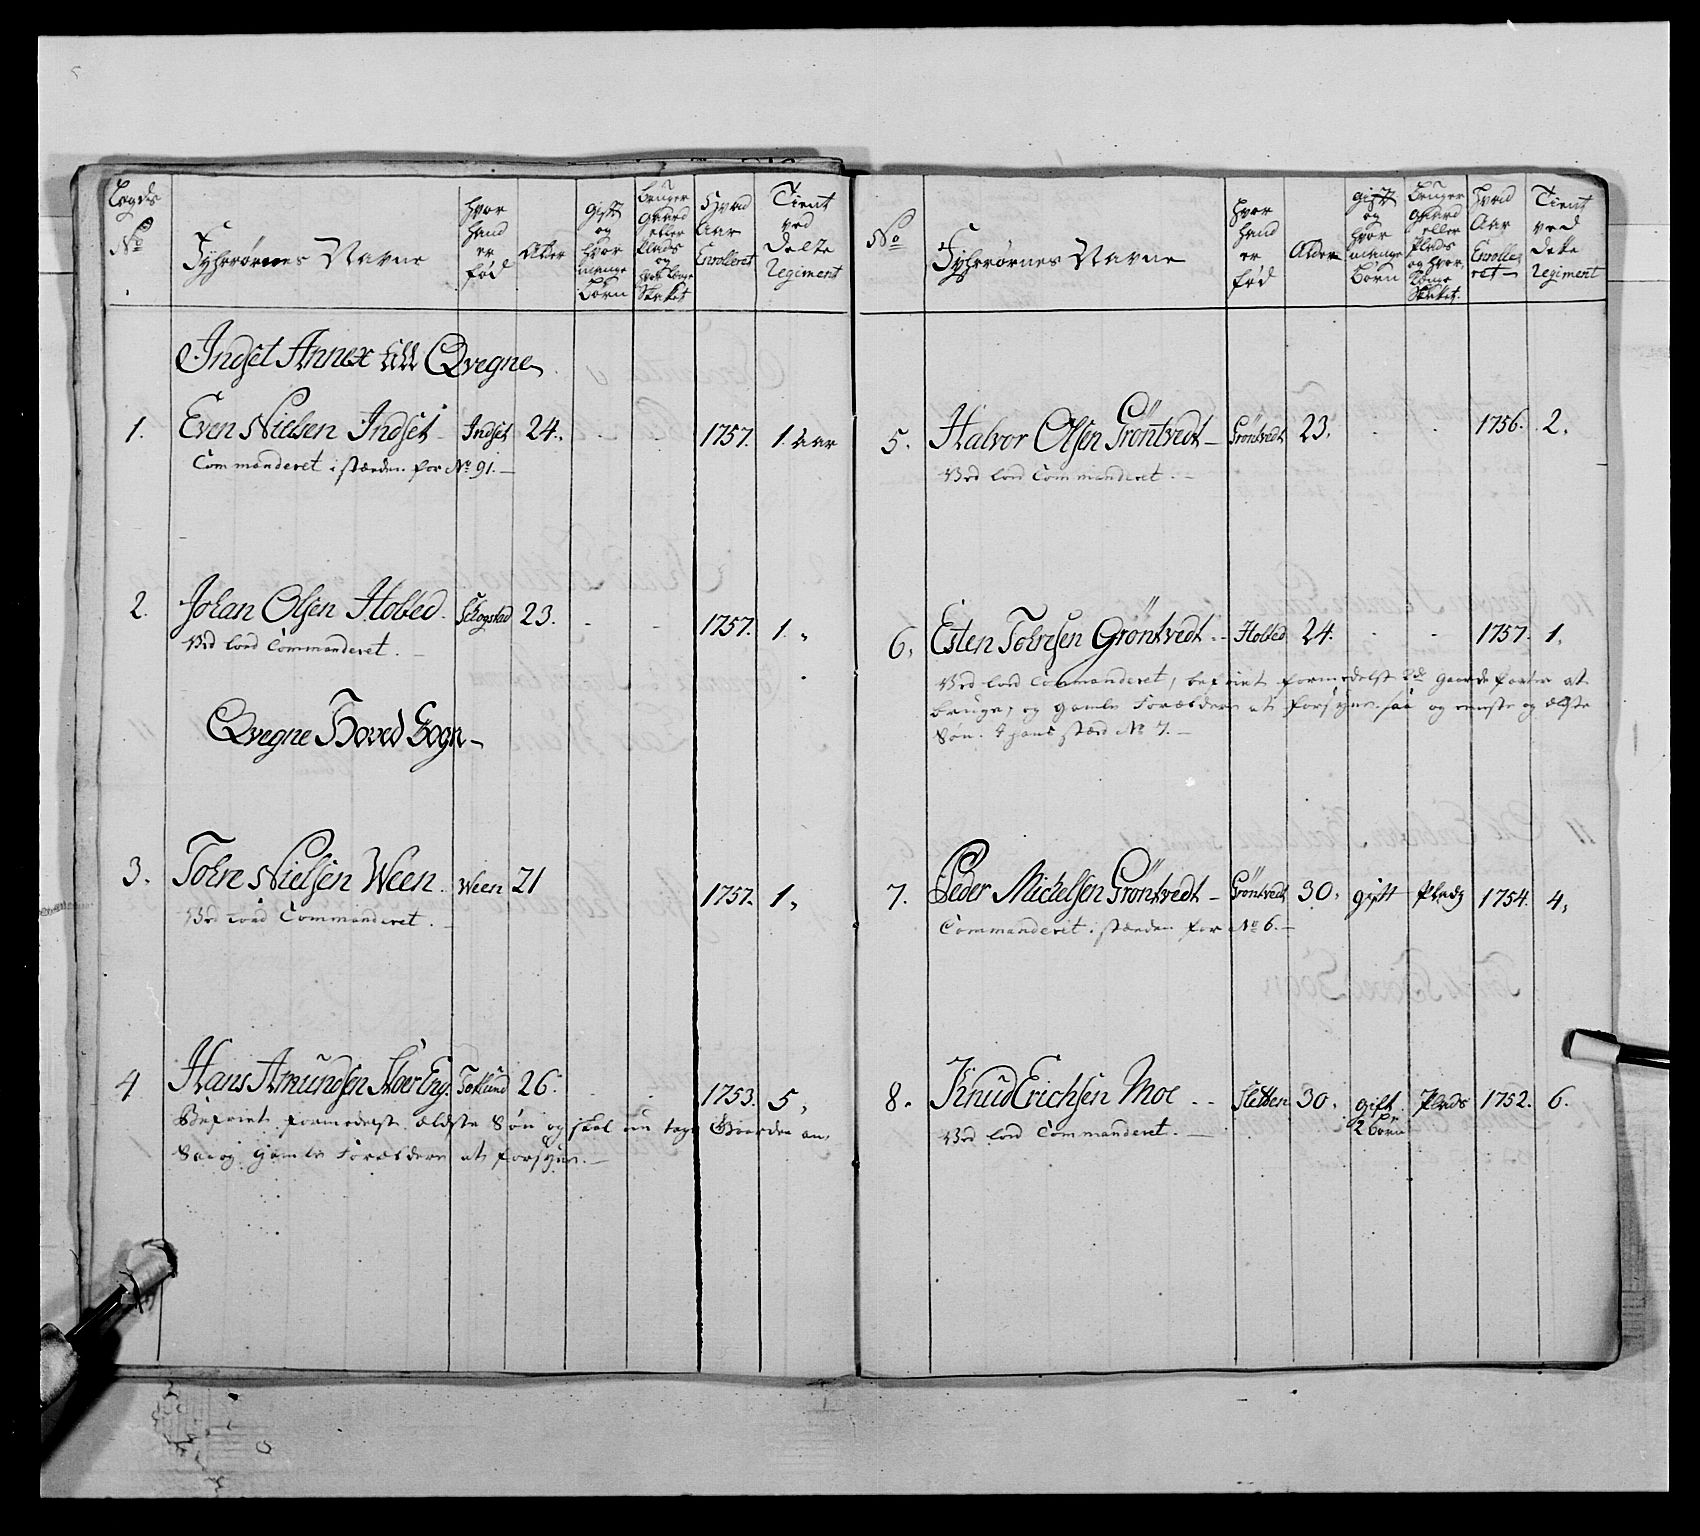 Legds No | Fyhrrørnes Navne | hvor hand er fød | Alder | gift og hvor mange børn | bruger gaard eller Plads og hvor Længe | Hvad Aar Enrolleret | Tient ved dette Regiment
Indset Annex till Qvegne
1. Even Nielsen Indset Indset 24. 1757. 1. Aar
Commanderet i stæden for No 91.
2. Johan Olsen Holted Skogstad 23. 1757. 1.
Ved Lord Commanderet.
Qvegne Hoved Sogn
3. Tohre Nielsen Ween. Ween 21 1757. 1.
Ved Lord Commanderet.
4 Hans Amundsen Stoer Eng. 26. 1753. 5.
Befriet formedelst ældste Søn og skal nu tage Gaarden an,
og gamle Forældre at forsyne.
No | Fyhrrørnes Navne | hvor hand er fød | Alder | gift og hvor mange Børn | bruger gaard eller Plads og hvor Længe | Hvad Aar Enrolleret | Tient ved dette Regiment
5. Halvor Olsen Gröntvedt Gröntvedt 23. 1756. 2.
Ved Lord Commanderet.
6. Esten Tohresen Gröntvedt Holted 24. 1757. 1.
Ved Lord Commanderet, befriet formedelst 2de Gaarde parter at
bruge, og gamle Forældre at forsyne, saa og eneste og ælste
Søn. I hans stæd No 7.
7. Peder Michelsen Gröntvedt Gröntvedt 30. gift Plads 1754. 4.
Commanderet i stæden for No 6.
8. Knud Erichsen Moe Sletten 30. gift 2 børn Plads 1752. 6.
Ved Lord Commanderet.